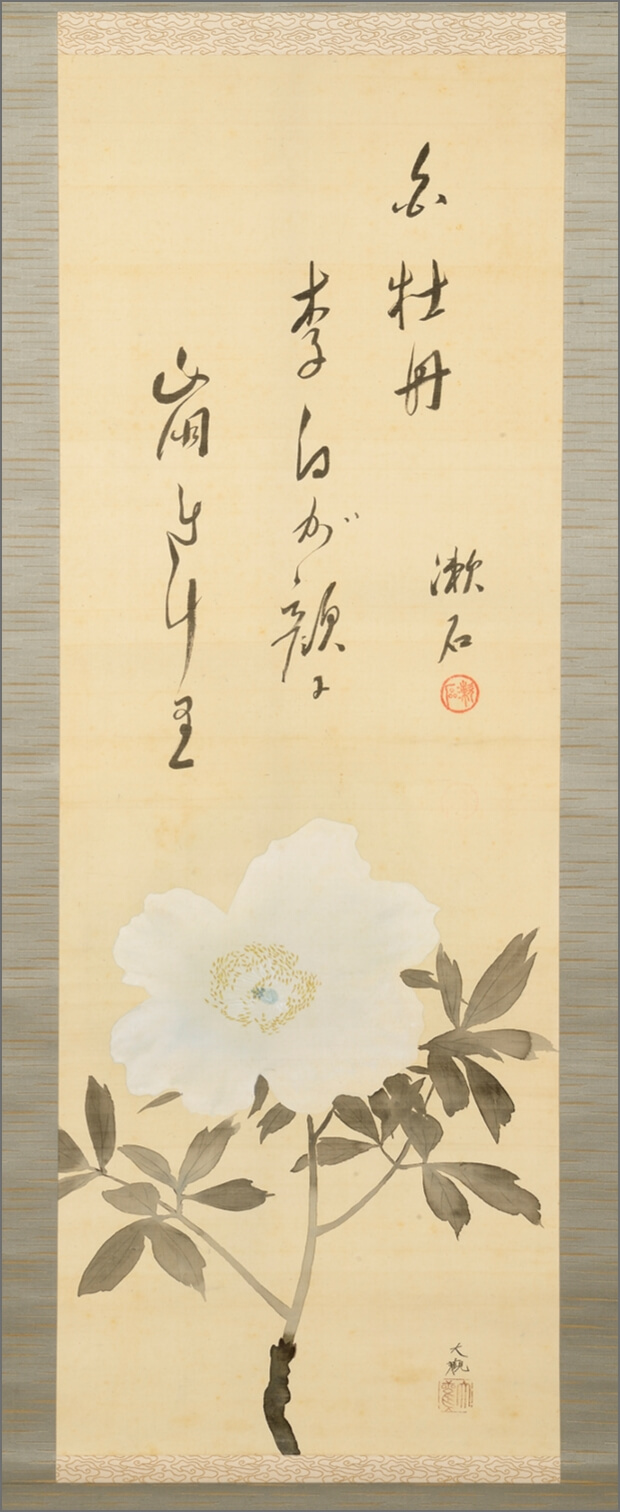 白牡丹
李白が顔に
崩れけり
漱石
漱石
大観